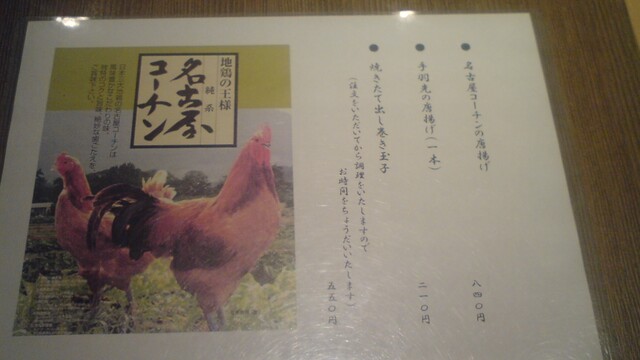 ● 名古屋コーチンの唐揚げ 八四〇円
● 手羽先の唐揚げ(一本) 二一〇円
● 焼きたて出し巻き玉子
(注文をいただいてから調理をいたしますので
お時間をちょうだいいたします) 五五〇円
地鶏の王様
純系
名古屋
コーチン